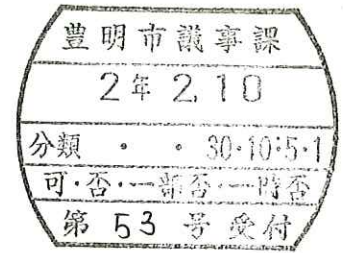 豊明市議事課
2年 2.10
分類 ・ ・ 30・10・5・1
可・否・一部否・一時否
第 53 号 受付